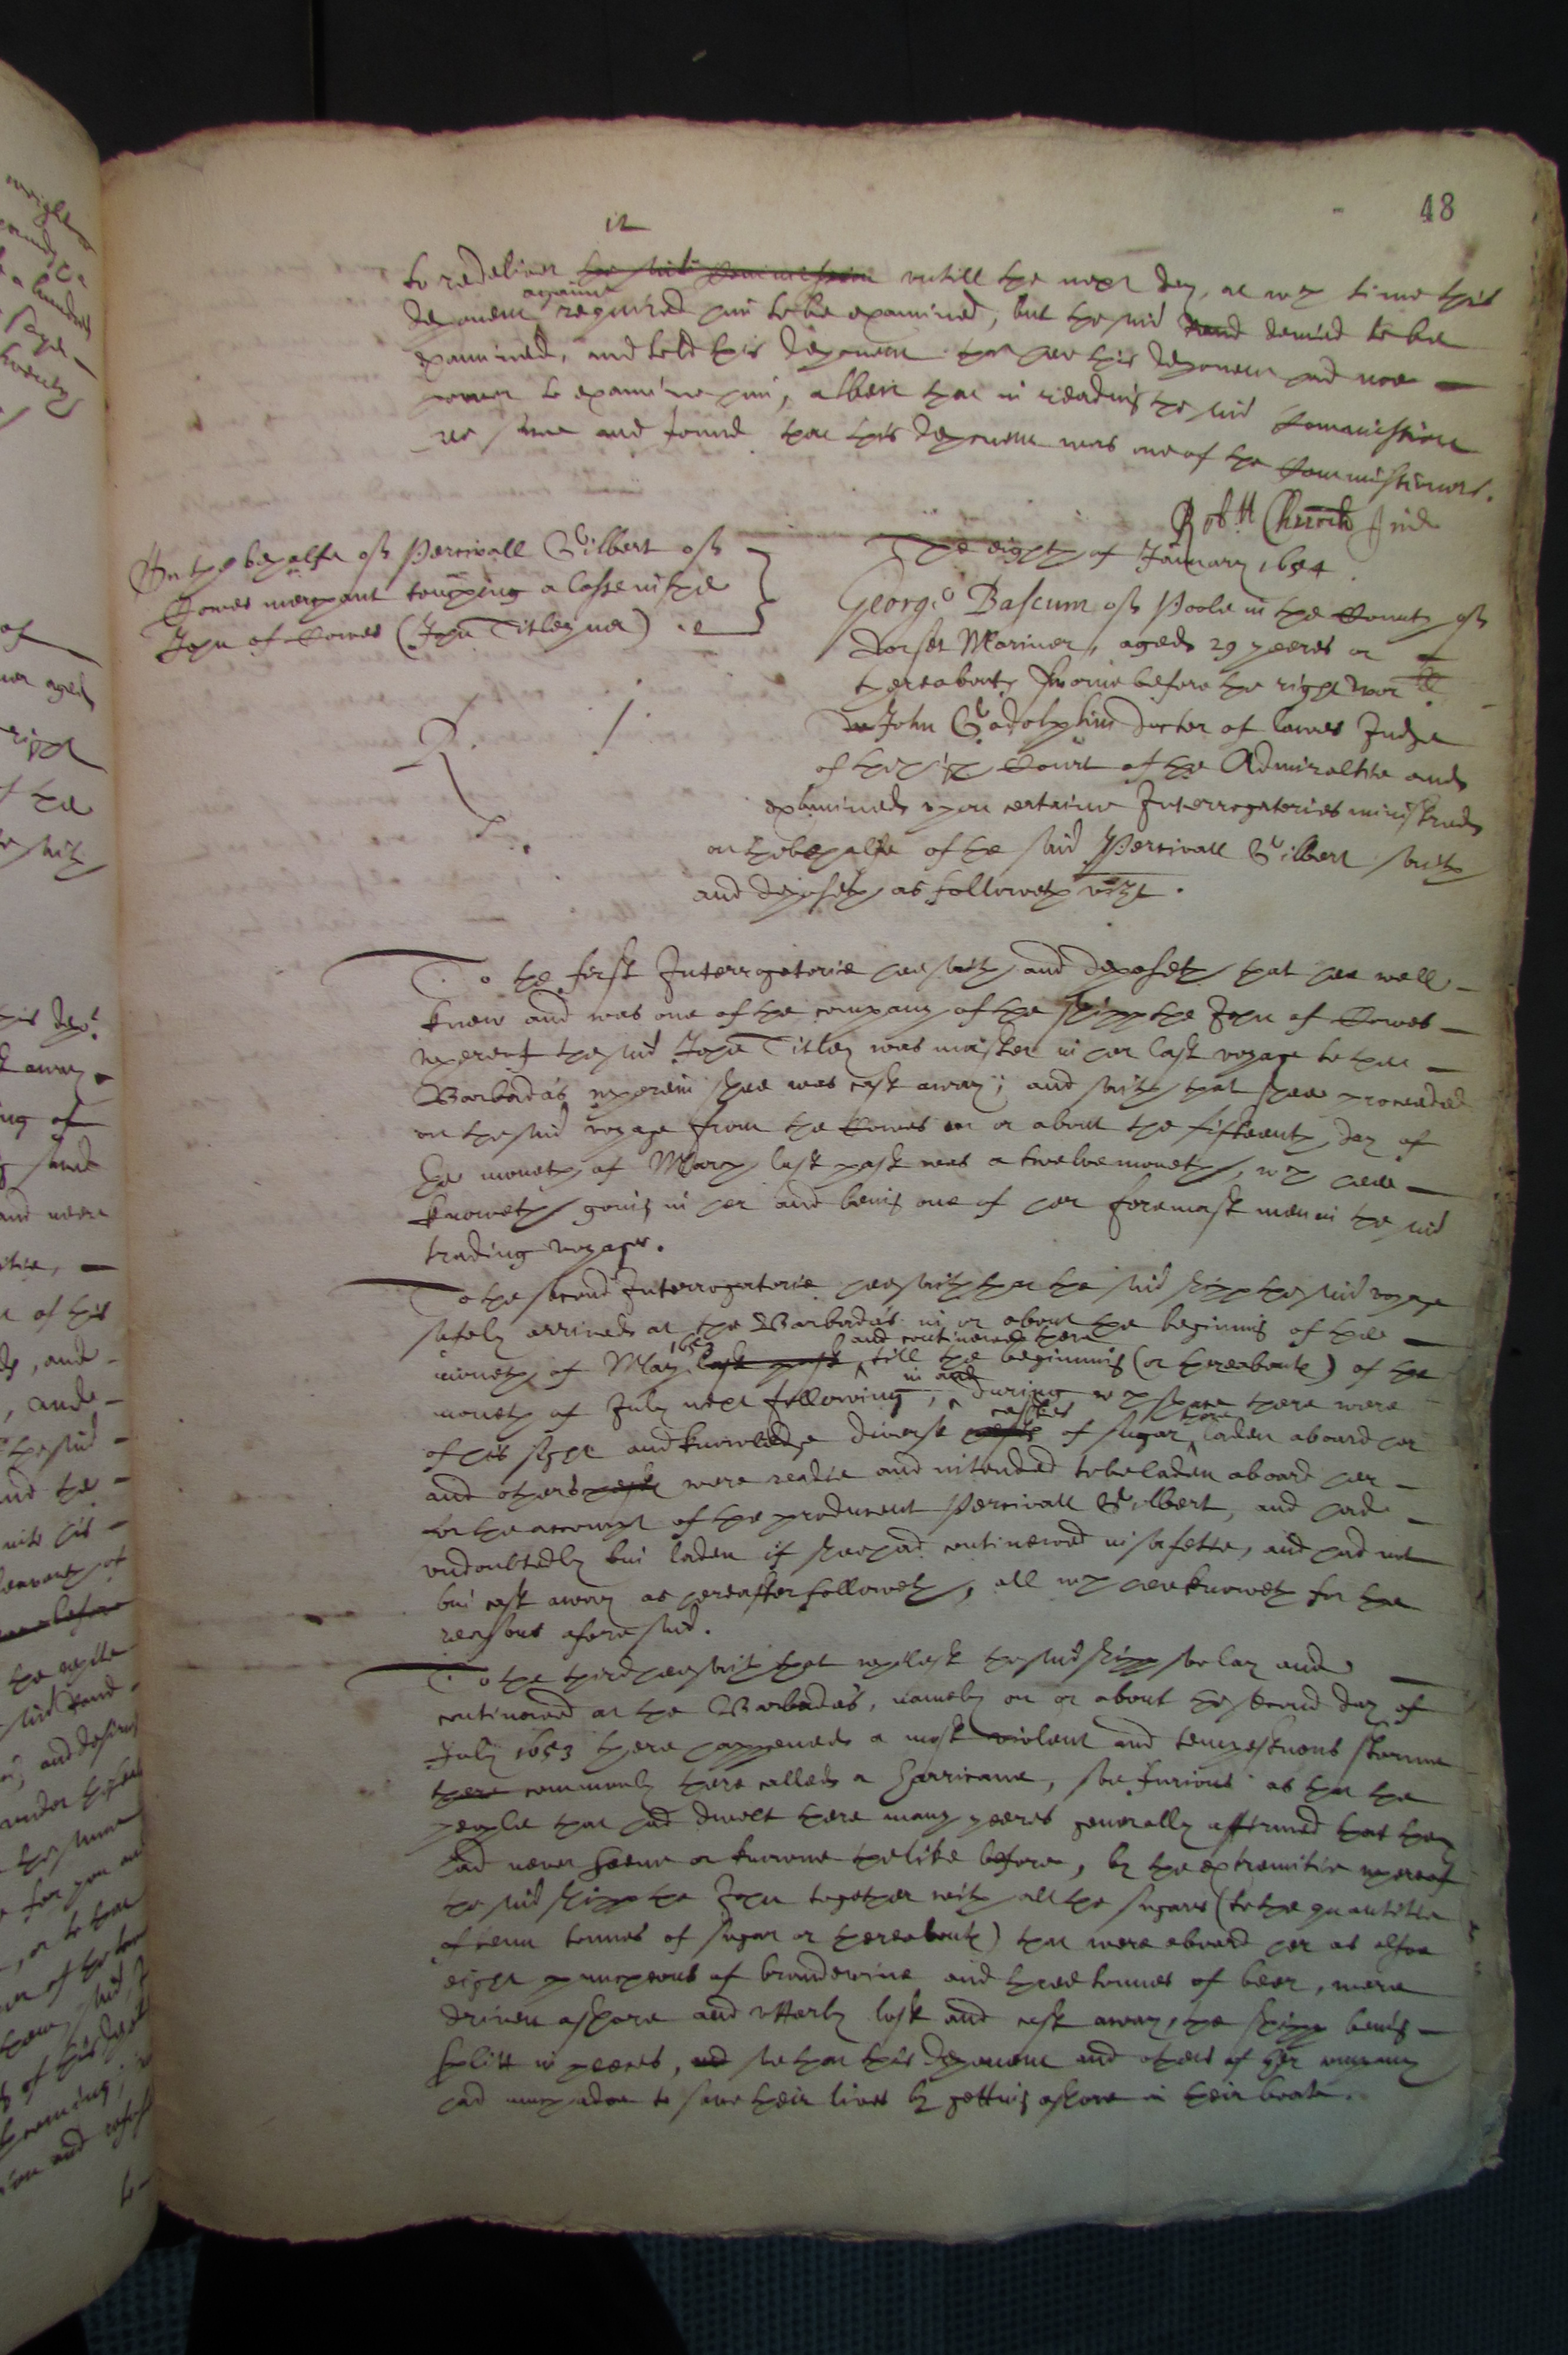 48
it
to redeliver the said Commission untill the next day, at wch time this
deponent againe required him to be examined, but the said Rand denied to be
examined, and told this deponent that hee this deponent had noe
power to examine him, albeit that in reading the said Commission
he saw and found that this deponent was one of the Commissioners.
Robtt Church
The eighth of January 1654
On the behalfe of Percivall Gilbert of
Cowes merchant touching a losse in the
John of Cowes (John Titley mr)
George Bascum of Poole in the County of
Dorset Mariner, aged 29 yeeres or
thereabouts sworne before the right worll
John Godolphin doctor of lawes Judge
of the high Court of the Admiraltie and
examined upon certaine Interrogatories ministred
on the behalfe of the said Percivall Gilbert saith
and deposeth as followeth vizt.
R. 1.
To the first Interrogatorie hee saith and deposeth that hee well
knew and was one of the company of the shipp the John of Cowes
whereof the said John Titley was master in her last voyage to the
Barbada's wherein shee was cast away; and saith that shee proceeded
on the said voyage from the Cowes on or about the fifteenth day of
the moneth of March last past was a twelvemoneth, wch hee
knoweth going in her and being one of her foremast men in the said
trading voyage.
To the second Interrogatorie hee saith that the said shipp the said voyage
safely arrived at the Barbada's in or about the beginning of the
moneth of May 1653 last past and continewed there till the beginning (or thereabouts) of the
moneth of July next following, in and during wch space there were
of his sight and knowledge diverse caskes of sugar there laden aboard her
and others were readie and intended to be laden aboard her
for the accompt of the producent Percivall Gilbert, and had
undoubtedly bin laden if shee had continewed in safetie, and had not
bin cast away as hereafter followeth, all wch hee knoweth for the
reasons aforesaid.
To the third hee saith that whilest the said shipp soe lay and
continewed at the Barbada's, namely on or about the second day of
July 1653 there happened a most violent and tempestuous storme
there commonly there called a Harricane, soe furious as that the
people that had dwelt there many yeeres generally affirmed that they
had never seene or knowne the like before, by the extremitie whereof
the said shipp the John together with all the sugars (to the quantitie
of tenn tonnes of sugar or thereabouts) that were aboard her as alsoe
eight puncheons of brandewine and three tonnes of beer, were
driven ashore and utterly lost and cast away, the shipp being
splitt in peeces, and soe that this deponent and others of her company
had much adoe to save their lives by getting ashore in their boate.